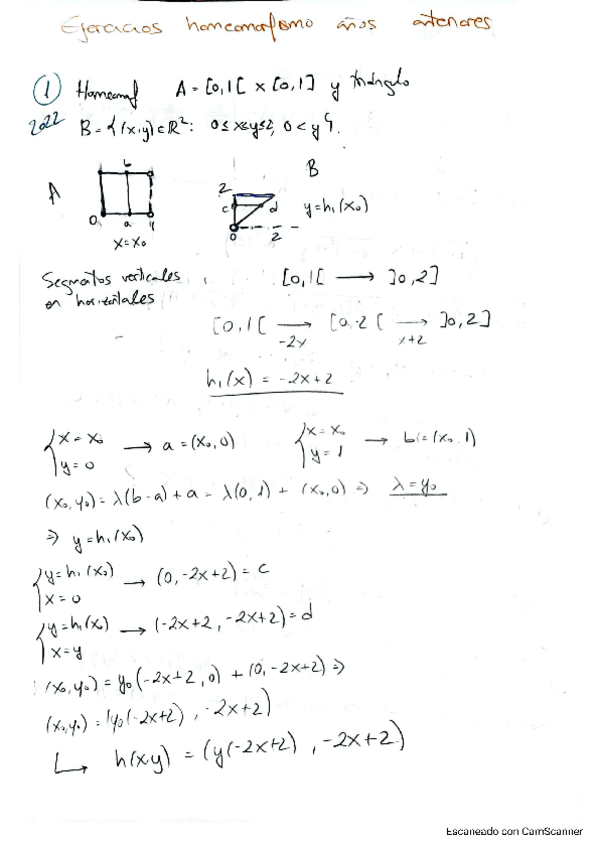 Ejercicios homeomorfismo años anteriores
1 Homeomf A = [0,1[ x [0,1] y triángulo
2022 B = {(x,y) ∈ R²: 0 ≤ x ≤ y ≤ 2, 0 < y}.
A b B
0 a 1 2 c d y = h₁(x₀)
x = x₀ 0 2
Segmatos verticales [0,1[ → ]0,2]
en horizontales
[0,1[ → [0,-2[ → ]0,2]
-2x x+2
h₁(x) = -2x+2
{x = x₀ → a = (x₀,0) {x = x₀ → b = (x₀,1)
y = 0 y = 1
(x₀,y₀) = λ(b-a) + a = λ(0,1) + (x₀,0) ⇒ λ = y₀
⇒ y = h₁(x₀)
{y = h₁(x₀) → (0,-2x+2) = c
x = 0
{y = h₁(x₀) → (-2x+2,-2x+2) = d
x = y
(x₀,y₀) = y₀(-2x+2,0) + (0,-2x+2) ⇒
(x₀,y₀) = (y₀(-2x+2), -2x+2)
↳ h(x,y) = (y(-2x+2), -2x+2)
Escaneado con CamScanner